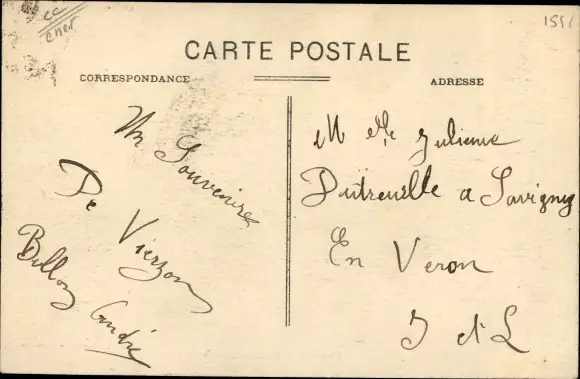 CARTE POSTALE
CORRESPONDANCE
ADRESSE
Un Souvenire
De Vierzon
Billoy André
M elle Julienne
Dutreuille a Savigny
En Veron
I et L